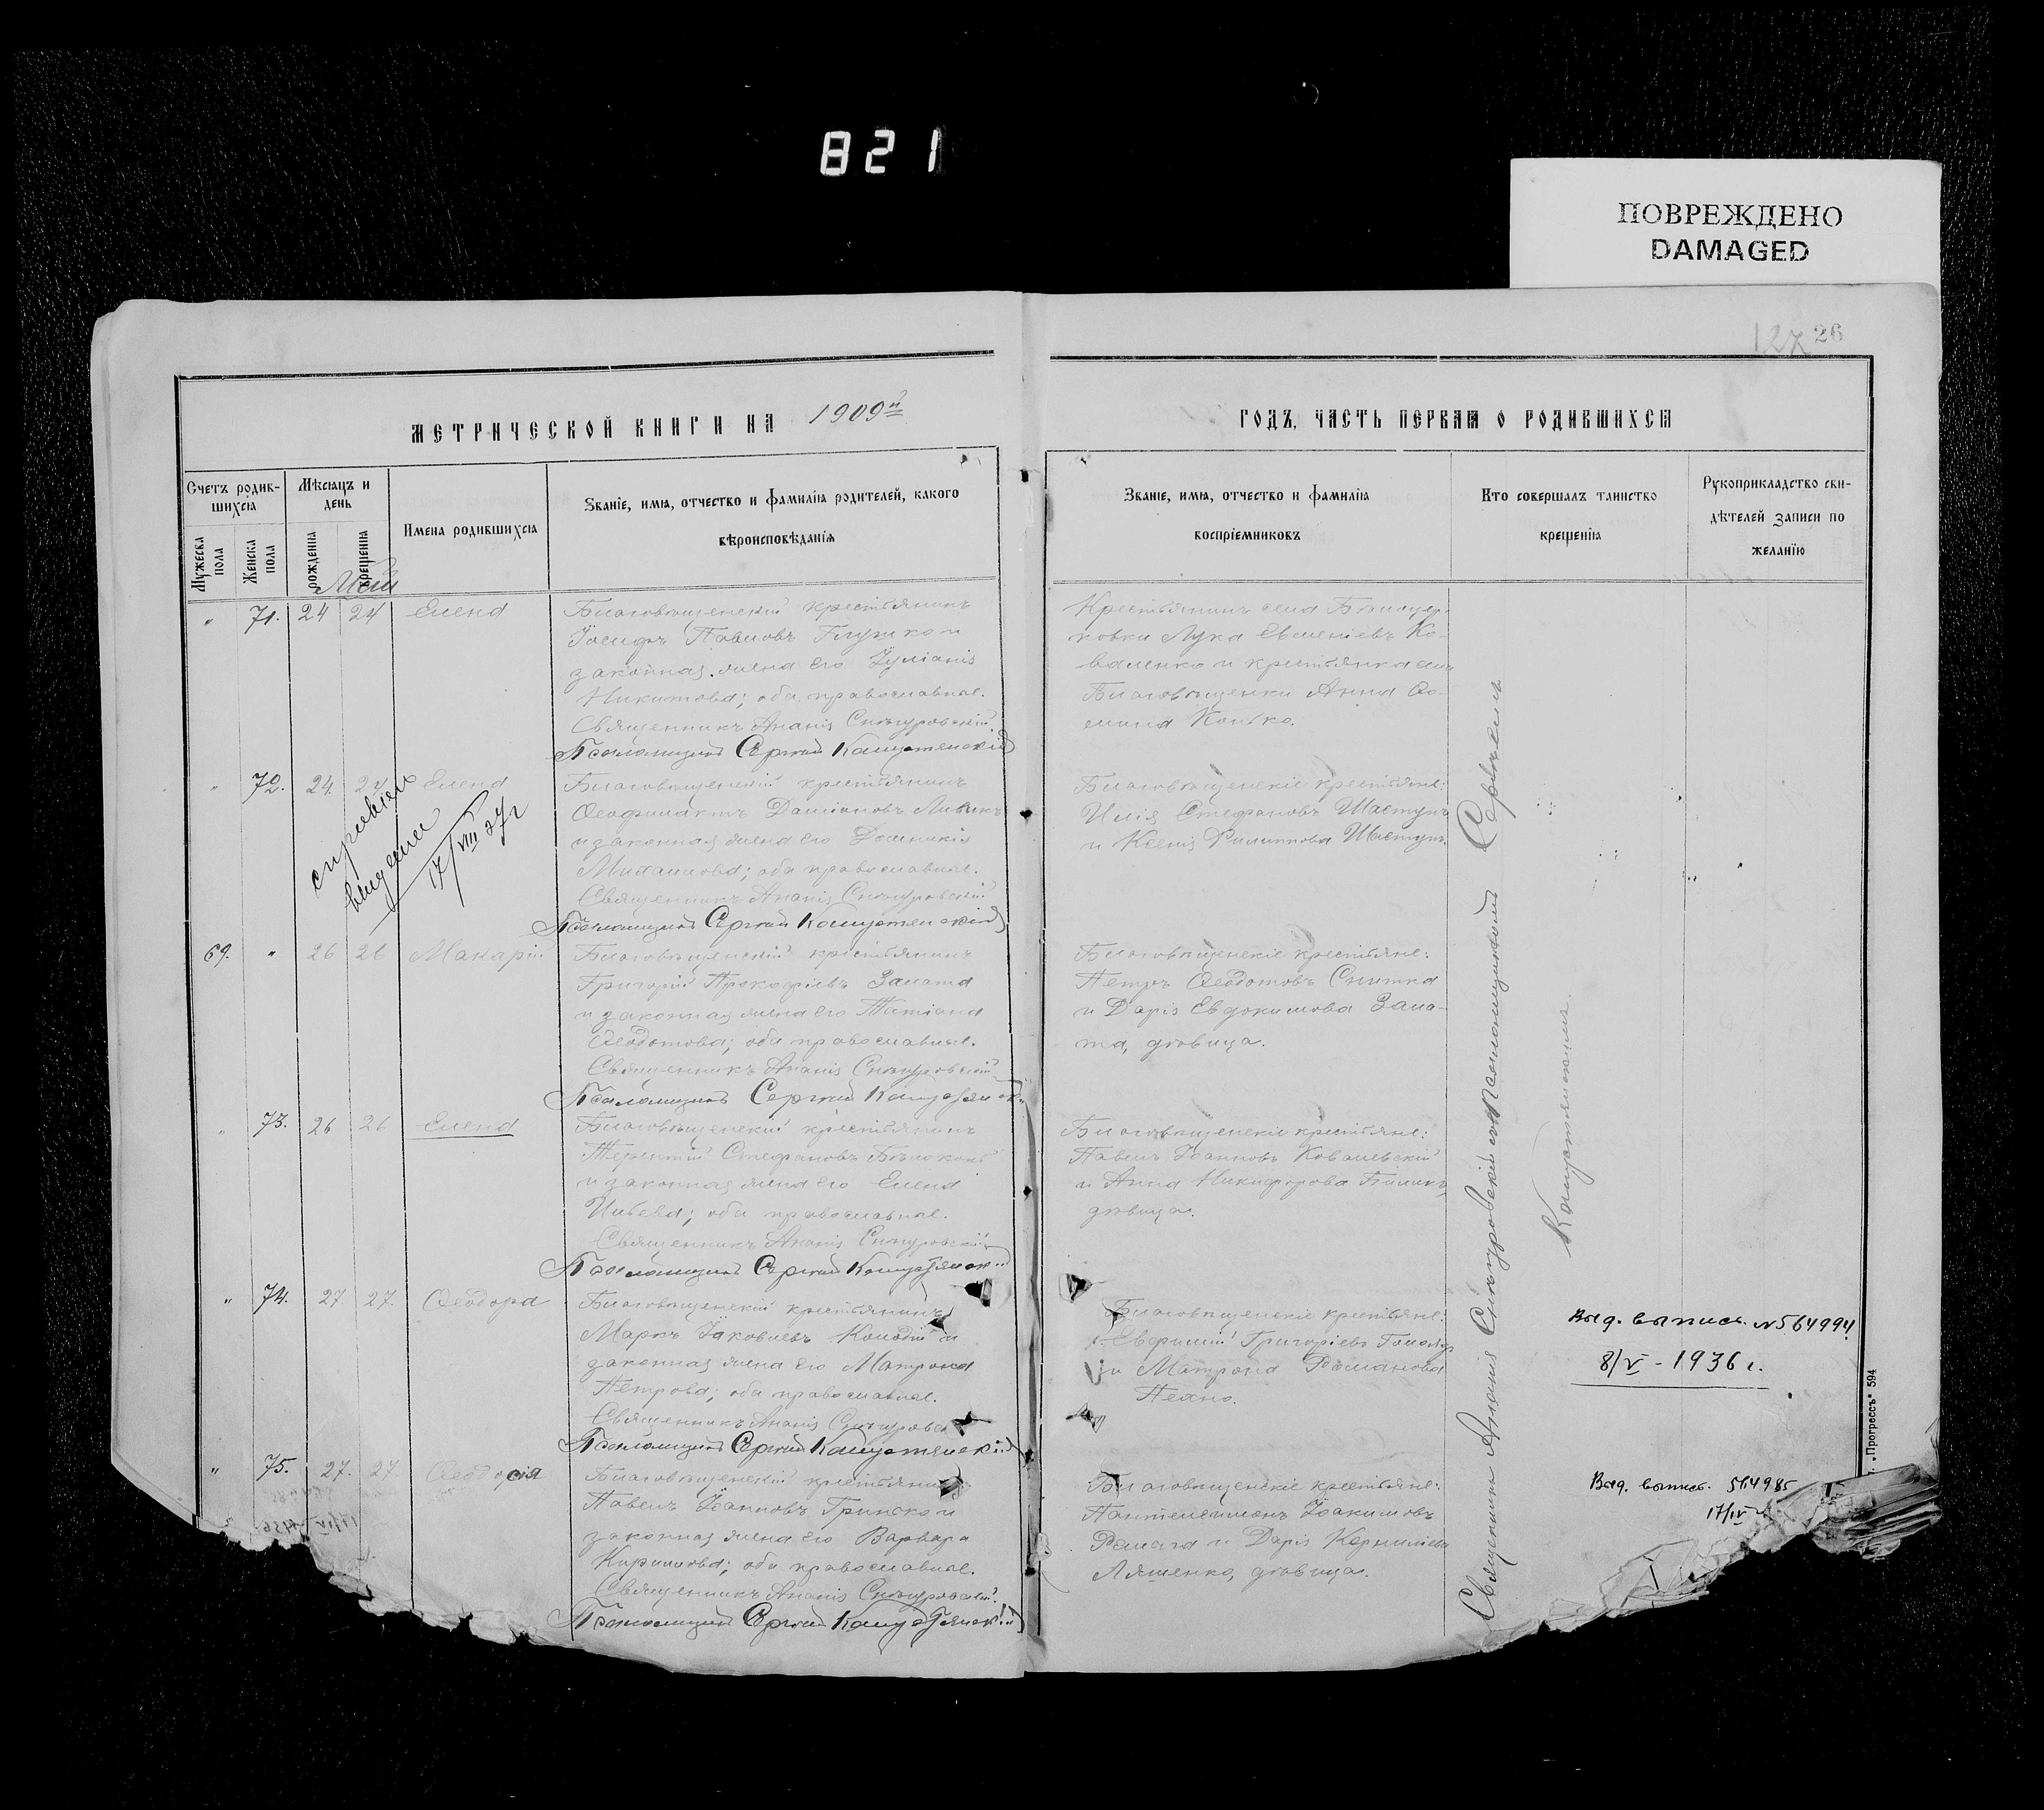 821
ПОВРЕЖДЕНО
DAMAGED
127 26
МЕТРИЧЕСКОЙ КНИГИ НА 1909й
ГОДЪ, ЧАСТЬ ПЕРВАЯ О РОДИВШИХСЯ
Счетъ родив-
шихся
Мужеска пола
Женска пола
Мѣсяцъ и
день
рожденія
крещенія
Имена родившихся
Званіе, имя, отчество и фамилія родителей, какого
вѣроисповѣданія
Званіе, имя, отчество и фамилія
воспріемниковъ
Кто совершалъ таинство
крещенія
Рукоприкладство сви-
дѣтелей записи по
желанію
Май
" 71. 24 24 Елена
Благовѣщенскій крестьянинъ
Іосифъ Павловъ Глушко и
законная жена его Іуліанія
Никитова; оба православные.
Священникъ Ананія Снѣгуровскій
Псаломщикъ Сергій Капустянскій
Крестьянинъ села
Лука Ко-
валенко и крестьянка села
Благовѣщенки Анна Ѳо-
мина
" 72. 24 24 Елена
справка
выдана
17/VIII 27 г
Благовѣщенскій крестьянинъ
Ѳеофилактъ Даміановъ
и законная жена его Домникія
Михаилова; оба православные.
Священникъ Ананія Снѣгуровскій
Псаломщикъ Сергій Капустянскій
Благовѣщенскіе крестьяне:
Илія Стефановъ Шаступъ
и Ксенія Филиппова Шаступъ.
69. " 26 26 Макарій
Благовѣщенскій крестьянинъ
Григорій Прокофіевъ Залата
и законная жена его Татіана
Ѳеодотова; оба православные.
Священникъ Ананія Снѣгуровскій
Псаломщикъ Сергій Капустянскій
Благовѣщенскіе крестьяне:
Петръ Ѳеодотовъ Снитка
и Дарія Евдокимова Зала-
та, дѣвица.
" 73. 26 26 Елена
Благовѣщенскій крестьянинъ
Терентій Стефановъ Бѣлоконь
и законная жена его Елена
Ильева; оба православные.
Священникъ Ананія Снѣгуровскій
Псаломщикъ Сергій Капустянскій
Благовѣщенскіе крестьяне:
Павелъ Іоанновъ Ковалевскій
и Анна Никифорова Билыкъ,
дѣвица.
" 74. 27 27. Ѳеодора
Благовѣщенскій крестьянинъ
Маркъ Іаковлевъ Колодій и
законная жена его Матрона
Петрова; оба православные.
Священникъ Ананія Снѣгуровскій
Псаломщикъ Сергій Капустянскій
Благовѣщенскіе крестьяне:
Григоріевъ
и Матрона Романова
Пехно.
Выд. выпись. №564994
8/V - 1936 г.
" 75. 27. 27. Ѳеодосія
Благовѣщенскій крестьянинъ
Павелъ Іоанновъ Гринько и
законная жена его Варвара
Кириллова; оба православные.
Священникъ Ананія Снѣгуровскій
Псаломщикъ Сергій Капустянскій
Благовѣщенскіе крестьяне:
Пантелеимонъ Іоакимовъ
и Дарія Корниліева
Ляшенко, дѣвица.
Выд. выпись. 564985
17/IV
Священникъ Ананія Снѣгуровскій съ псаломщикомъ Сергіемъ
Капустянскимъ.
„Прогрессъ" 594